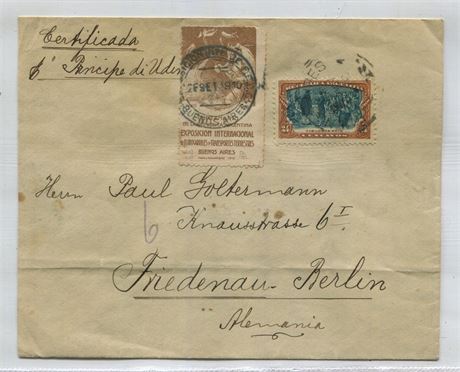 Certificada
p' Principe di Udine
BUENOS AIRES
ARGENTINA
EXPOSICION INTERNACIONAL
DE FERROCARRILES Y TRANSPORTES TERRESTRES
BUENOS AIRES
CENTAVOS
Herrn Paul Goltermann
Knausstrasse 6 I.
6
Friedenau-Berlin
Alemania